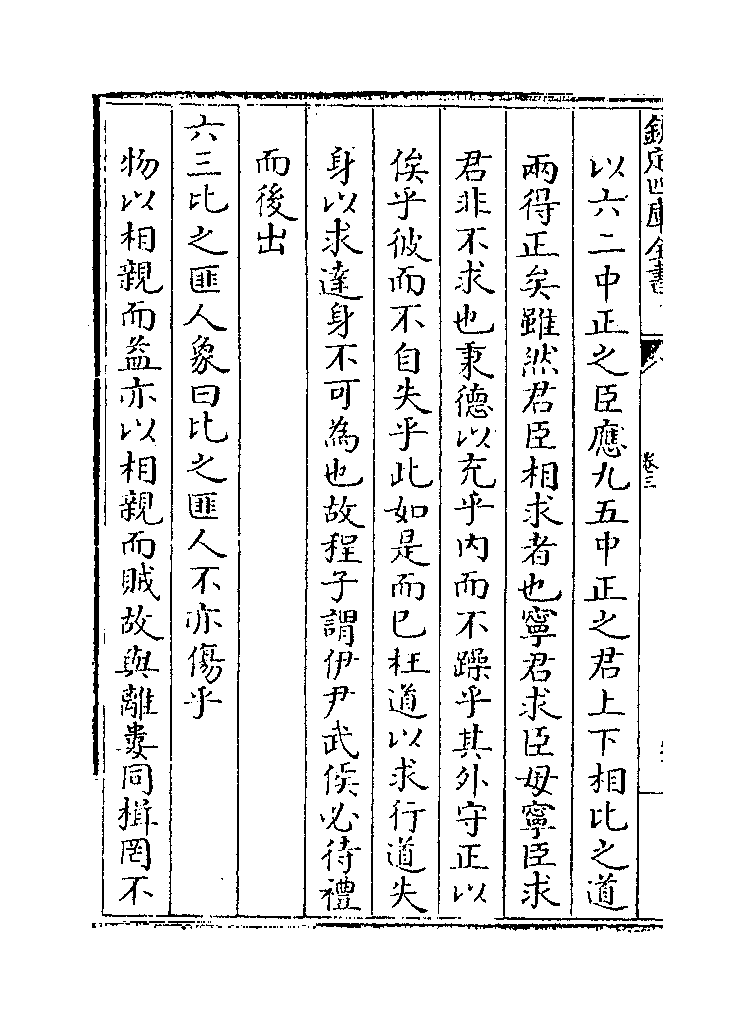 欽定四庫全書
卷三
以六二中正之臣應九五中正之君上下相比之道
兩得正矣雖然君臣相求者也寧君求臣毋寧臣求
君非不求也秉德以充乎内而不躁乎其外守正以
俟乎彼而不自失乎此如是而已枉道以求行道失
身以求達身不可為也故程子謂伊尹武侯必待禮
而後出
六三比之匪人象曰比之匪人不亦傷乎
物以相親而益亦以相親而賊故與離婁同楫罔不